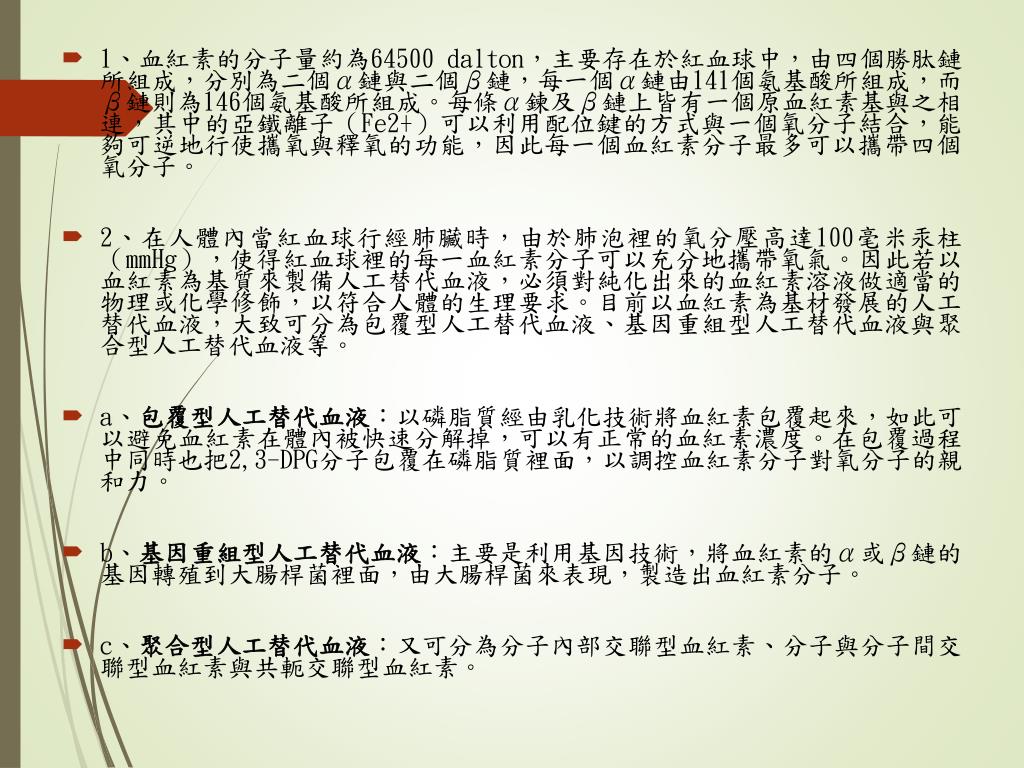 1、血紅素的分子量約為64500 dalton，主要存在於紅血球中，由四個勝肽鏈
所組成，分別為二個α鏈與二個β鏈，每一個α鏈由141個氨基酸所組成，而
β鏈則為146個氨基酸所組成。每條α鍊及β鏈上皆有一個原血紅素基與之相
連，其中的亞鐵離子（Fe2+）可以利用配位鍵的方式與一個氧分子結合，能
夠可逆地行使攜氧與釋氧的功能，因此每一個血紅素分子最多可以攜帶四個
氧分子。
2、在人體內當紅血球行經肺臟時，由於肺泡裡的氧分壓高達100毫米汞柱
（mmHg），使得紅血球裡的每一血紅素分子可以充分地攜帶氧氣。因此若以
血紅素為基質來製備人工替代血液，必須對純化出來的血紅素溶液做適當的
物理或化學修飾，以符合人體的生理要求。目前以血紅素為基材發展的人工
替代血液，大致可分為包覆型人工替代血液、基因重組型人工替代血液與聚
合型人工替代血液等。
a、包覆型人工替代血液：以磷脂質經由乳化技術將血紅素包覆起來，如此可
以避免血紅素在體內被快速分解掉，可以有正常的血紅素濃度。在包覆過程
中同時也把2,3-DPG分子包覆在磷脂質裡面，以調控血紅素分子對氧分子的親
和力。
b、基因重組型人工替代血液：主要是利用基因技術，將血紅素的α或β鏈的
基因轉殖到大腸桿菌裡面，由大腸桿菌來表現，製造出血紅素分子。
c、聚合型人工替代血液：又可分為分子內部交聯型血紅素、分子與分子間交
聯型血紅素與共軛交聯型血紅素。